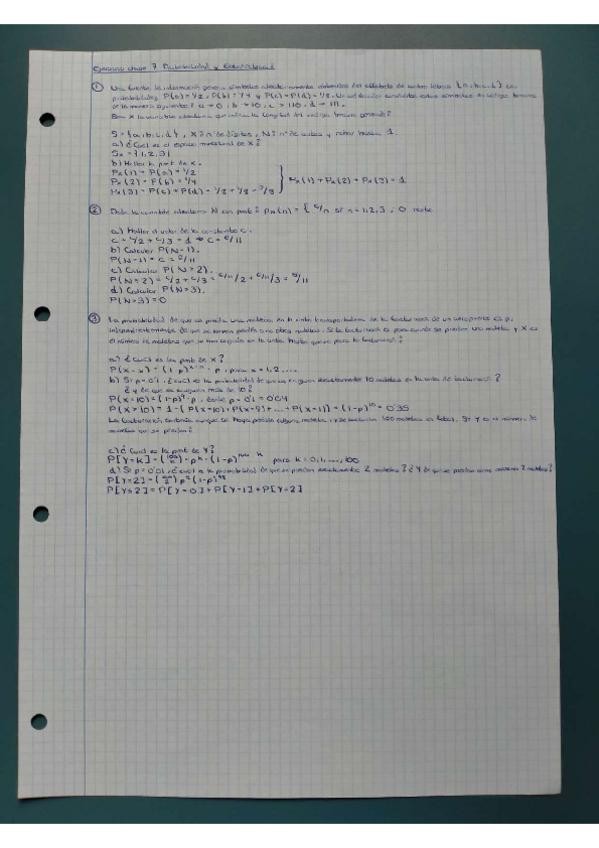 Ejercicios clase 7 Probabilidad y Estadística
① Una fuente de información genera símbolos aleatoriamente obtenidos del alfabeto de cuatro letras {a,b,c,d} con
probabilidades P(a)=1/2, P(b)=1/4 y P(c)=P(d)=1/8. Un codificador estos símbolos en código binario
de la manera siguiente: a→0, b→10, c→110, d→111.
Sea X la variable aleatoria que la longitud del código binario generado?
S={a,b,c,d}, X=nº de dígitos, 1
a) ¿Cual es el espacio muestral de X?
Sx={1,2,3}
b) Hallar la pmf de X.
Px(1)=P(a)=1/2
Px(2)=P(b)=1/4
Px(1)+Px(2)+Px(3)=1
② Dada la variable aleatoria N con pmf: PN(n)={ c/n si n=1,2,3, 0 resto
a) Hallar el valor de la constante c.
c+c/2+c/3=1 → c=6/11
b) Calcular P(N=1).
P(N=1)=c=6/11
c) Calcular P(N≥2).
P(N≥2)=c/2+c/3=6/11/2+6/11/3=5/11
d) Calcular P(N>3).
P(N>3)=0
③ La probabilidad de que se pierda una maleta en la cinta transportadora de la facturación de un aeropuerto es p,
independientemente de que se hayan perdido o no otras maletas. Si la facturación se para cuando se pierde una maleta y X es
el número de maletas que se han en la cinta hasta que se para la facturación:
a) ¿Cual es la pmf de X?
P(X=x)=(1-p)ˣ⁻¹·p, para x=1,2,...
b) Si p=0'1, ¿cual es la probabilidad de que se exactamente 10 maletas en la cinta de facturación?
¿y de que se más de 10?
P(X=10)=(1-p)⁹·p, p=0'1=0'04
P(X>10)=1-[P(X=10)+P(X=9)+...+P(X=1)]=(1-p)¹⁰=0'35
La facturación continúa aunque se haya perdido alguna maleta, y se facturan 100 maletas en total. Si Y es el número de
maletas que se pierden:
c) ¿Cual es la pmf de Y?
P[Y=k]=(100 k)·pᵏ·(1-p)¹⁰⁰⁻ᵏ para k=0,1,...,100
d) Si p=0'01, ¿cual es la probabilidad de que se pierdan exactamente 2 maletas? ¿Y de que se pierdan como máximo 2 maletas?
P[Y=2]=(100 2)p²(1-p)⁹⁸
P[Y≤2]=P[Y=0]+P[Y=1]+P[Y=2]